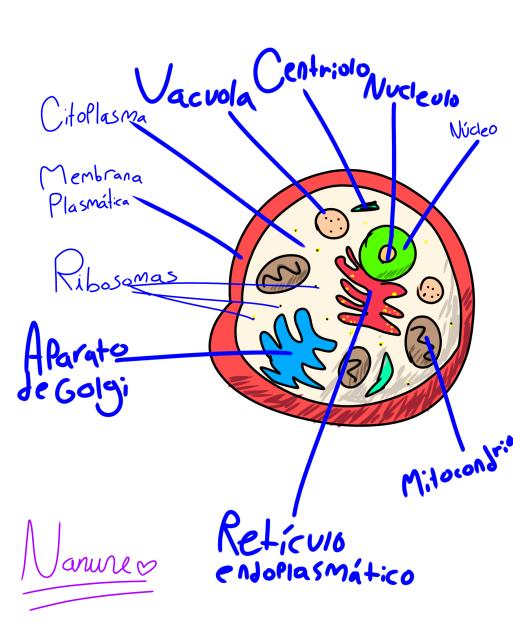 Vacuola
Centriolo
Nucleolo
Núcleo
Citoplasma
Membrana
Plasmática
Ribosomas
Aparato
de Golgi
Mitocondrio
Retículo
endoplasmático